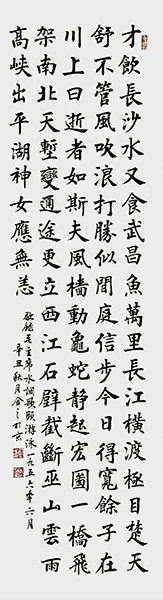 才飲長沙水又食武昌魚萬里長江橫渡極目楚天
舒不管風吹浪打勝似閒庭信步今日得寬餘子在
川上曰逝者如斯夫風檣動龜蛇静起宏圖一橋飛
架南北天塹變通途更立西江石壁截斷巫山雲雨
髙峽出平湖神女應無恙
敬錄毛主席水調歌頭游泳一九五六年六月
辛丑秋月於京